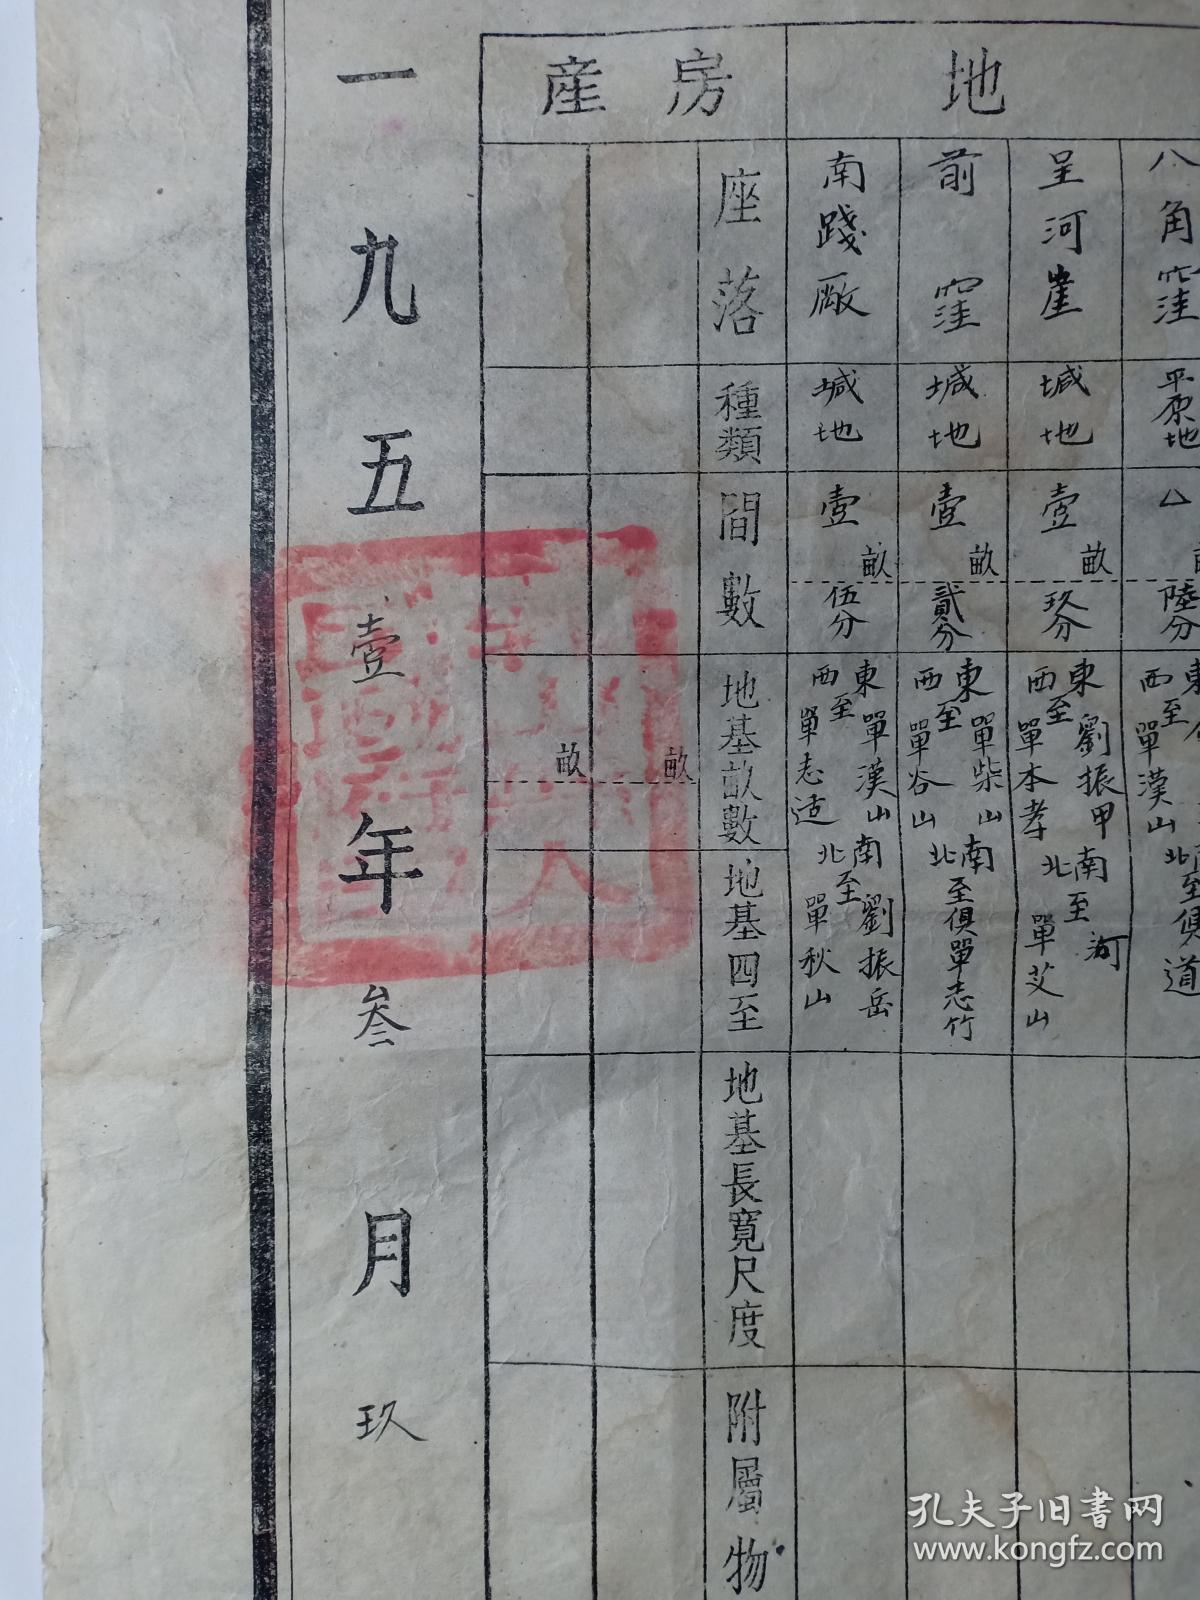 地
房產
八角窪
平原地
厶
陸分
西至單漢山
道
呈河崖
堿地
壹畝
玖分
東至劉振甲
西至單本孝
南至河
北至單艾山
前窪
堿地
壹畝
貳分
東至單柴山
西至單谷山
南北至俱單志竹
南踐廠
堿地
壹畝
伍分
東至單漢山
西至單志适
南至劉振岳
北至單秋山
座落
種類
間數
地基畝數
地基四至
地基長寬尺度
附屬物
畝
畝
一九五壹年叁月玖
孔夫子旧书网
www.kongfz.com